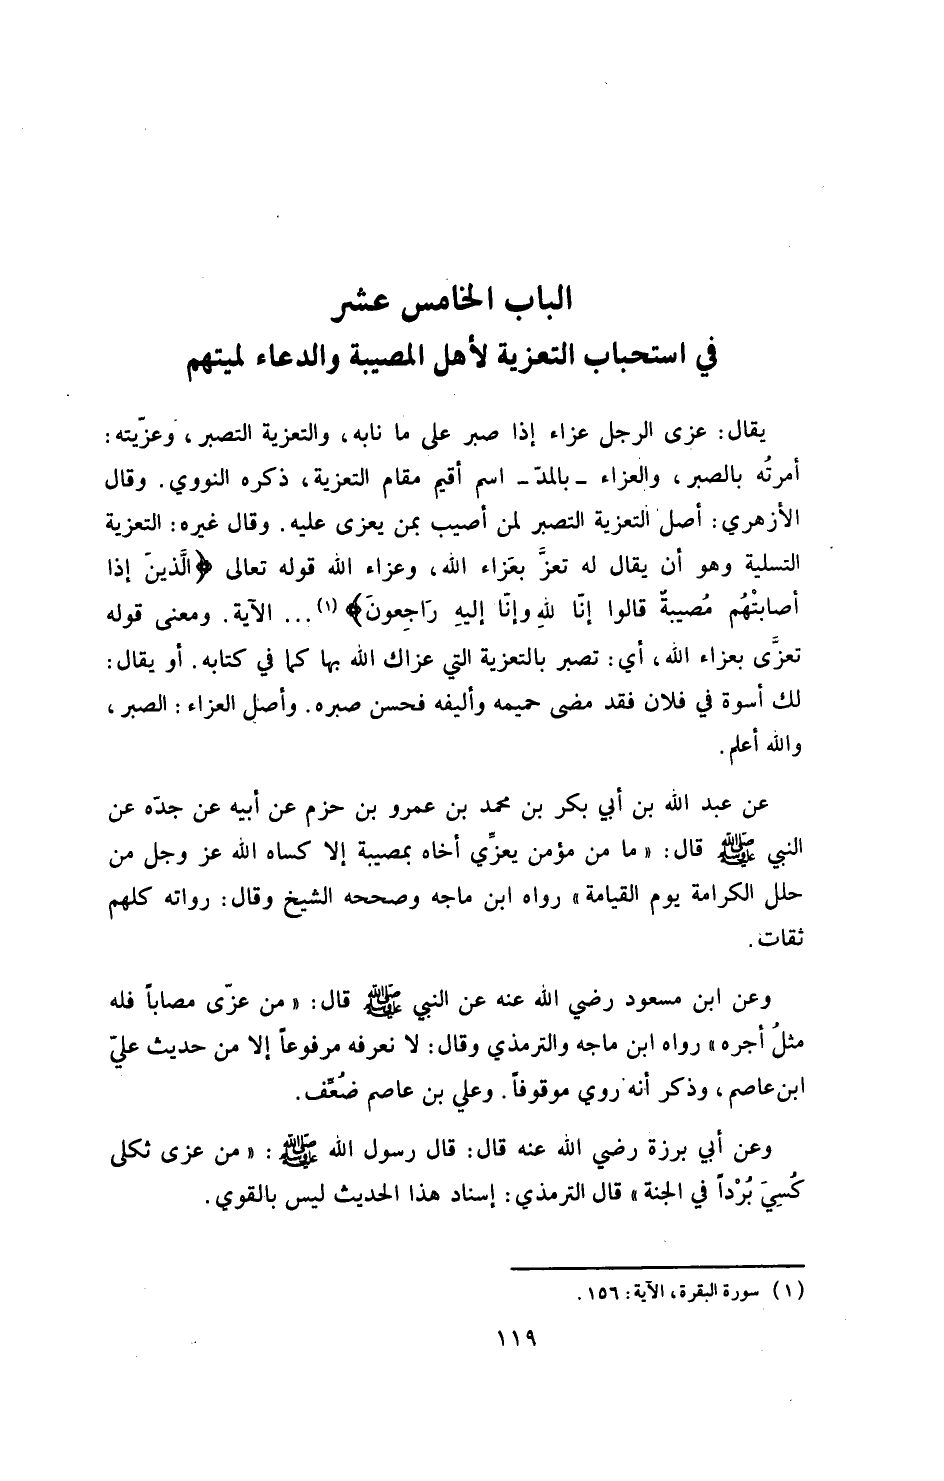 الباب الخامس عشر
في استحباب التعزية لأهل المصيبة والدعاء لميتهم
يقال: عزى الرجل عزاء إذا صبر على ما نابه، والتعزية التصبر، وعزّيته:
أمرتُه بالصبر، والعزاء ـ بالمدّ ـ اسم أقيم مقام التعزية، ذكره النووي. وقال
الأزهري: أصل التعزية التصبر لمن أصيب بمن يعزى عليه. وقال غيره: التعزية
التسلية وهو أن يقال له تعزَّ بعَزاء الله، وعزاء الله قوله تعالى ﴿الَّذينَ إذا
أصابتْهُم مُصيبةٌ قالوا إنّا للهِ وإنّا إليهِ رَاجِعونَ﴾ (١) ... الآية. ومعنى قوله
تعزَّى بعزاء الله، أي: تصبر بالتعزية التي عزاك الله بها كما في كتابه. أو يقال:
لك أسوة في فلان فقد مضى حميمه وأليفه فحسن صبره. وأصل العزاء: الصبر،
والله أعلم.
عن عبد الله بن أبي بكر بن محمد بن عمرو بن حزم عن أبيه عن جدّه عن
النبي ﷺ قال: «ما من مؤمن يعزِّي أخاه بمصيبة إلا كساه الله عز وجل من
حلل الكرامة يوم القيامة» رواه ابن ماجه وصححه الشيخ وقال: رواته كلهم
ثقات.
وعن ابن مسعود رضي الله عنه عن النبي ﷺ قال: «من عزّى مصاباً فله
مثلُ أجره» رواه ابن ماجه والترمذي وقال: لا نعرفه مرفوعاً إلا من حديث عليّ
ابن عاصم، وذكر أنه روي موقوفاً. وعلي بن عاصم ضُعِّف.
وعن أبي برزة رضي الله عنه قال: قال رسول الله ﷺ: «من عزى ثكلى
كُسِيَ بُرْداً في الجنة» قال الترمذي: إسناد هذا الحديث ليس بالقوي.
(١) سورة البقرة، الآية: ١٥٦.
١١٩